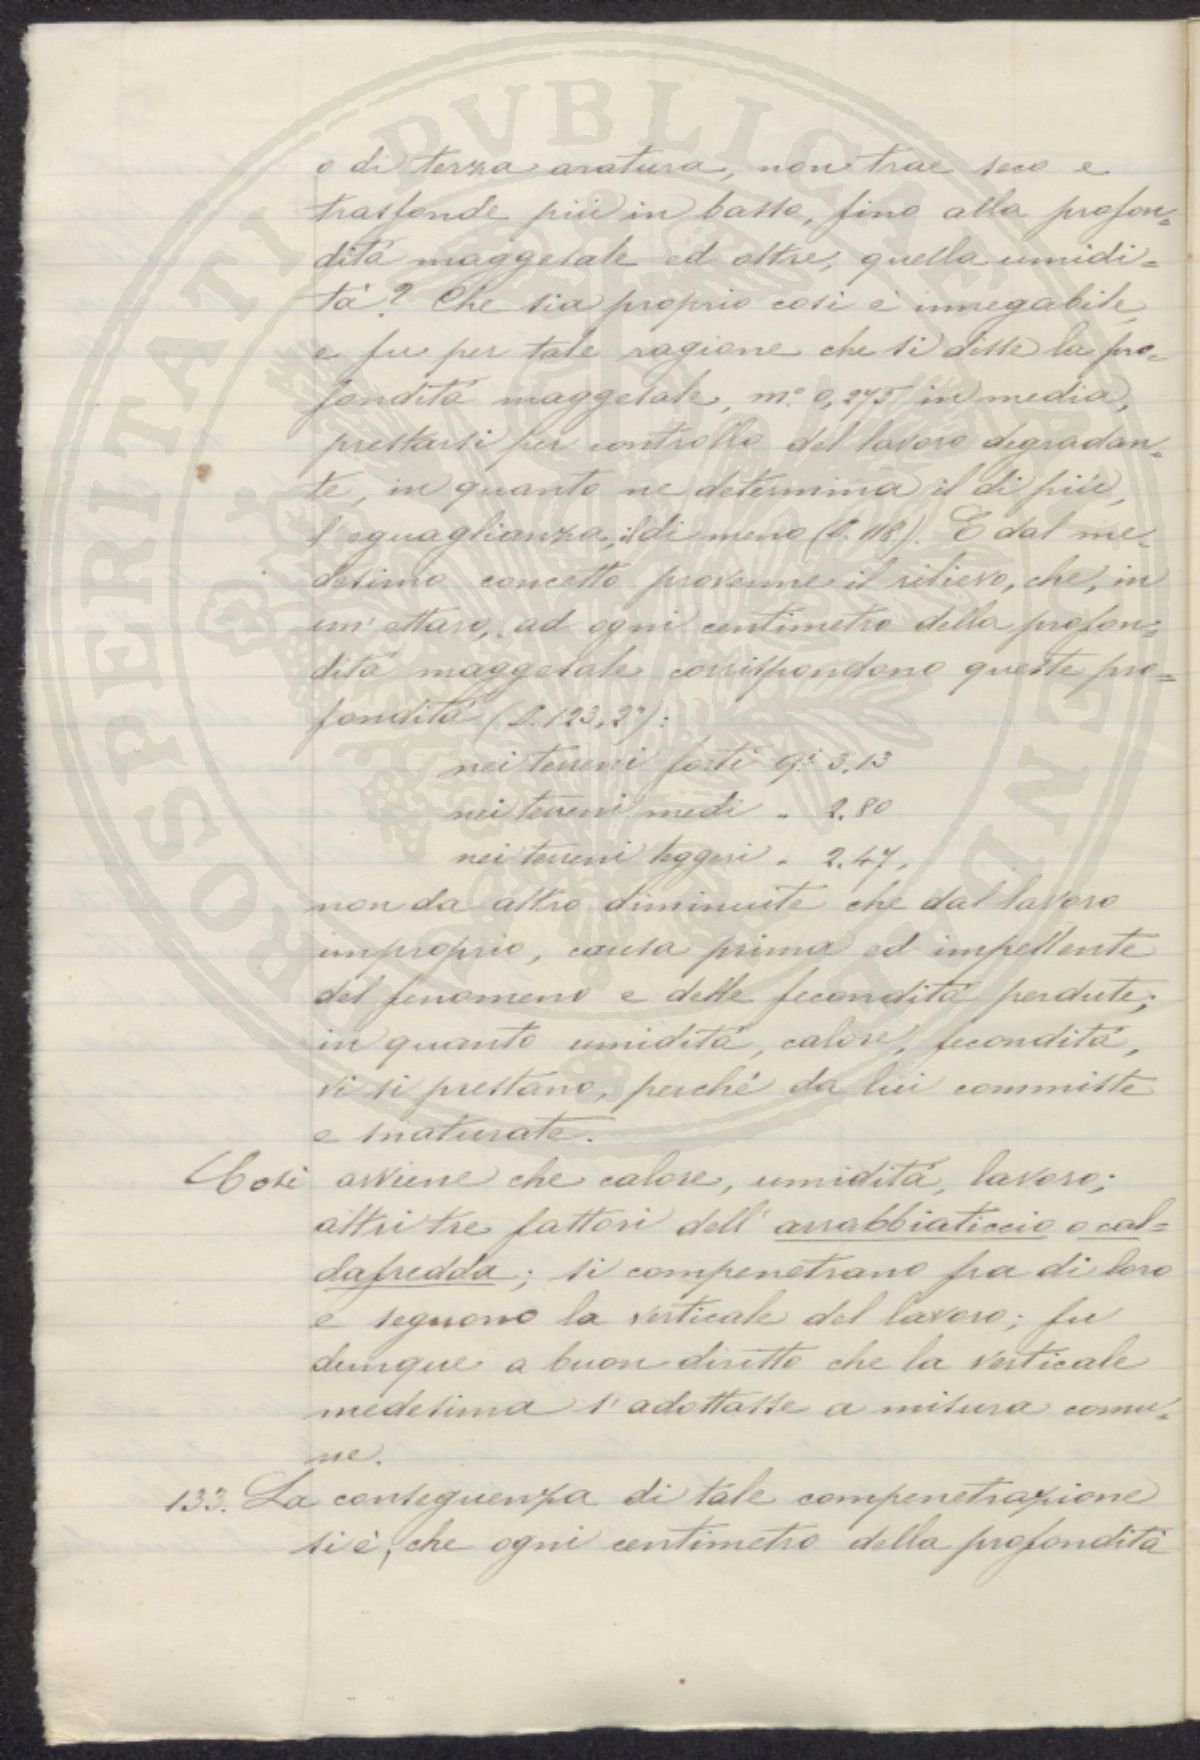 o di terza aratura, non trae seco e
trasfonde più in basso, fino alla profon=
dità maggesale ed oltre, quella umidi=
tà? Che sia proprio così è innegabile,
e fu per tale ragione che si disse la pro=
fondità maggesale, m.º 0,275 in media,
prestarsi per controllo del lavoro degradan=
te, in quanto ne determina il di più,
l'eguaglianza, il di meno (P. 118). E dal me=
desimo concetto provenne il rilievo, che, in
un'ettaro, ad ogni centimetro della profon=
dità maggesale corrispondono queste pro=
fondità (P. 123, 2º):
nei terreni forti q.i 3,13
nei terreni medi " 2.80
nei terreni leggeri " 2.47,
non da altro diminuite che dal lavoro
improprio, causa prima ed impellente
del fenomeno e delle fecondità perdute;
in quanto umidità, calore, fecondità,
vi si prestano, perché da lui commiste
e snaturate.
Così avviene che calore, umidità, lavoro;
altri tre fattori dell'arrabbiaticcio o cal=
dafredda; si compenetrano fra di loro
e seguono la verticale del lavoro; fu
dunque a buon diritto che la verticale
medesima s'adottasse a misura comu=
ne.
133. La conseguenza di tale compenetrazione
si è, che ogni centimetro della profondità
PROSPERITATI PVBLICAE